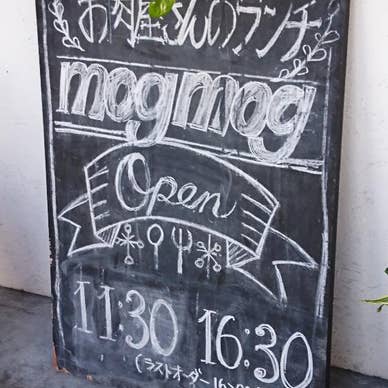 お肉屋さんのランチ
mogmog
Open
11:30 16:30
(ラストオーダー 16:00